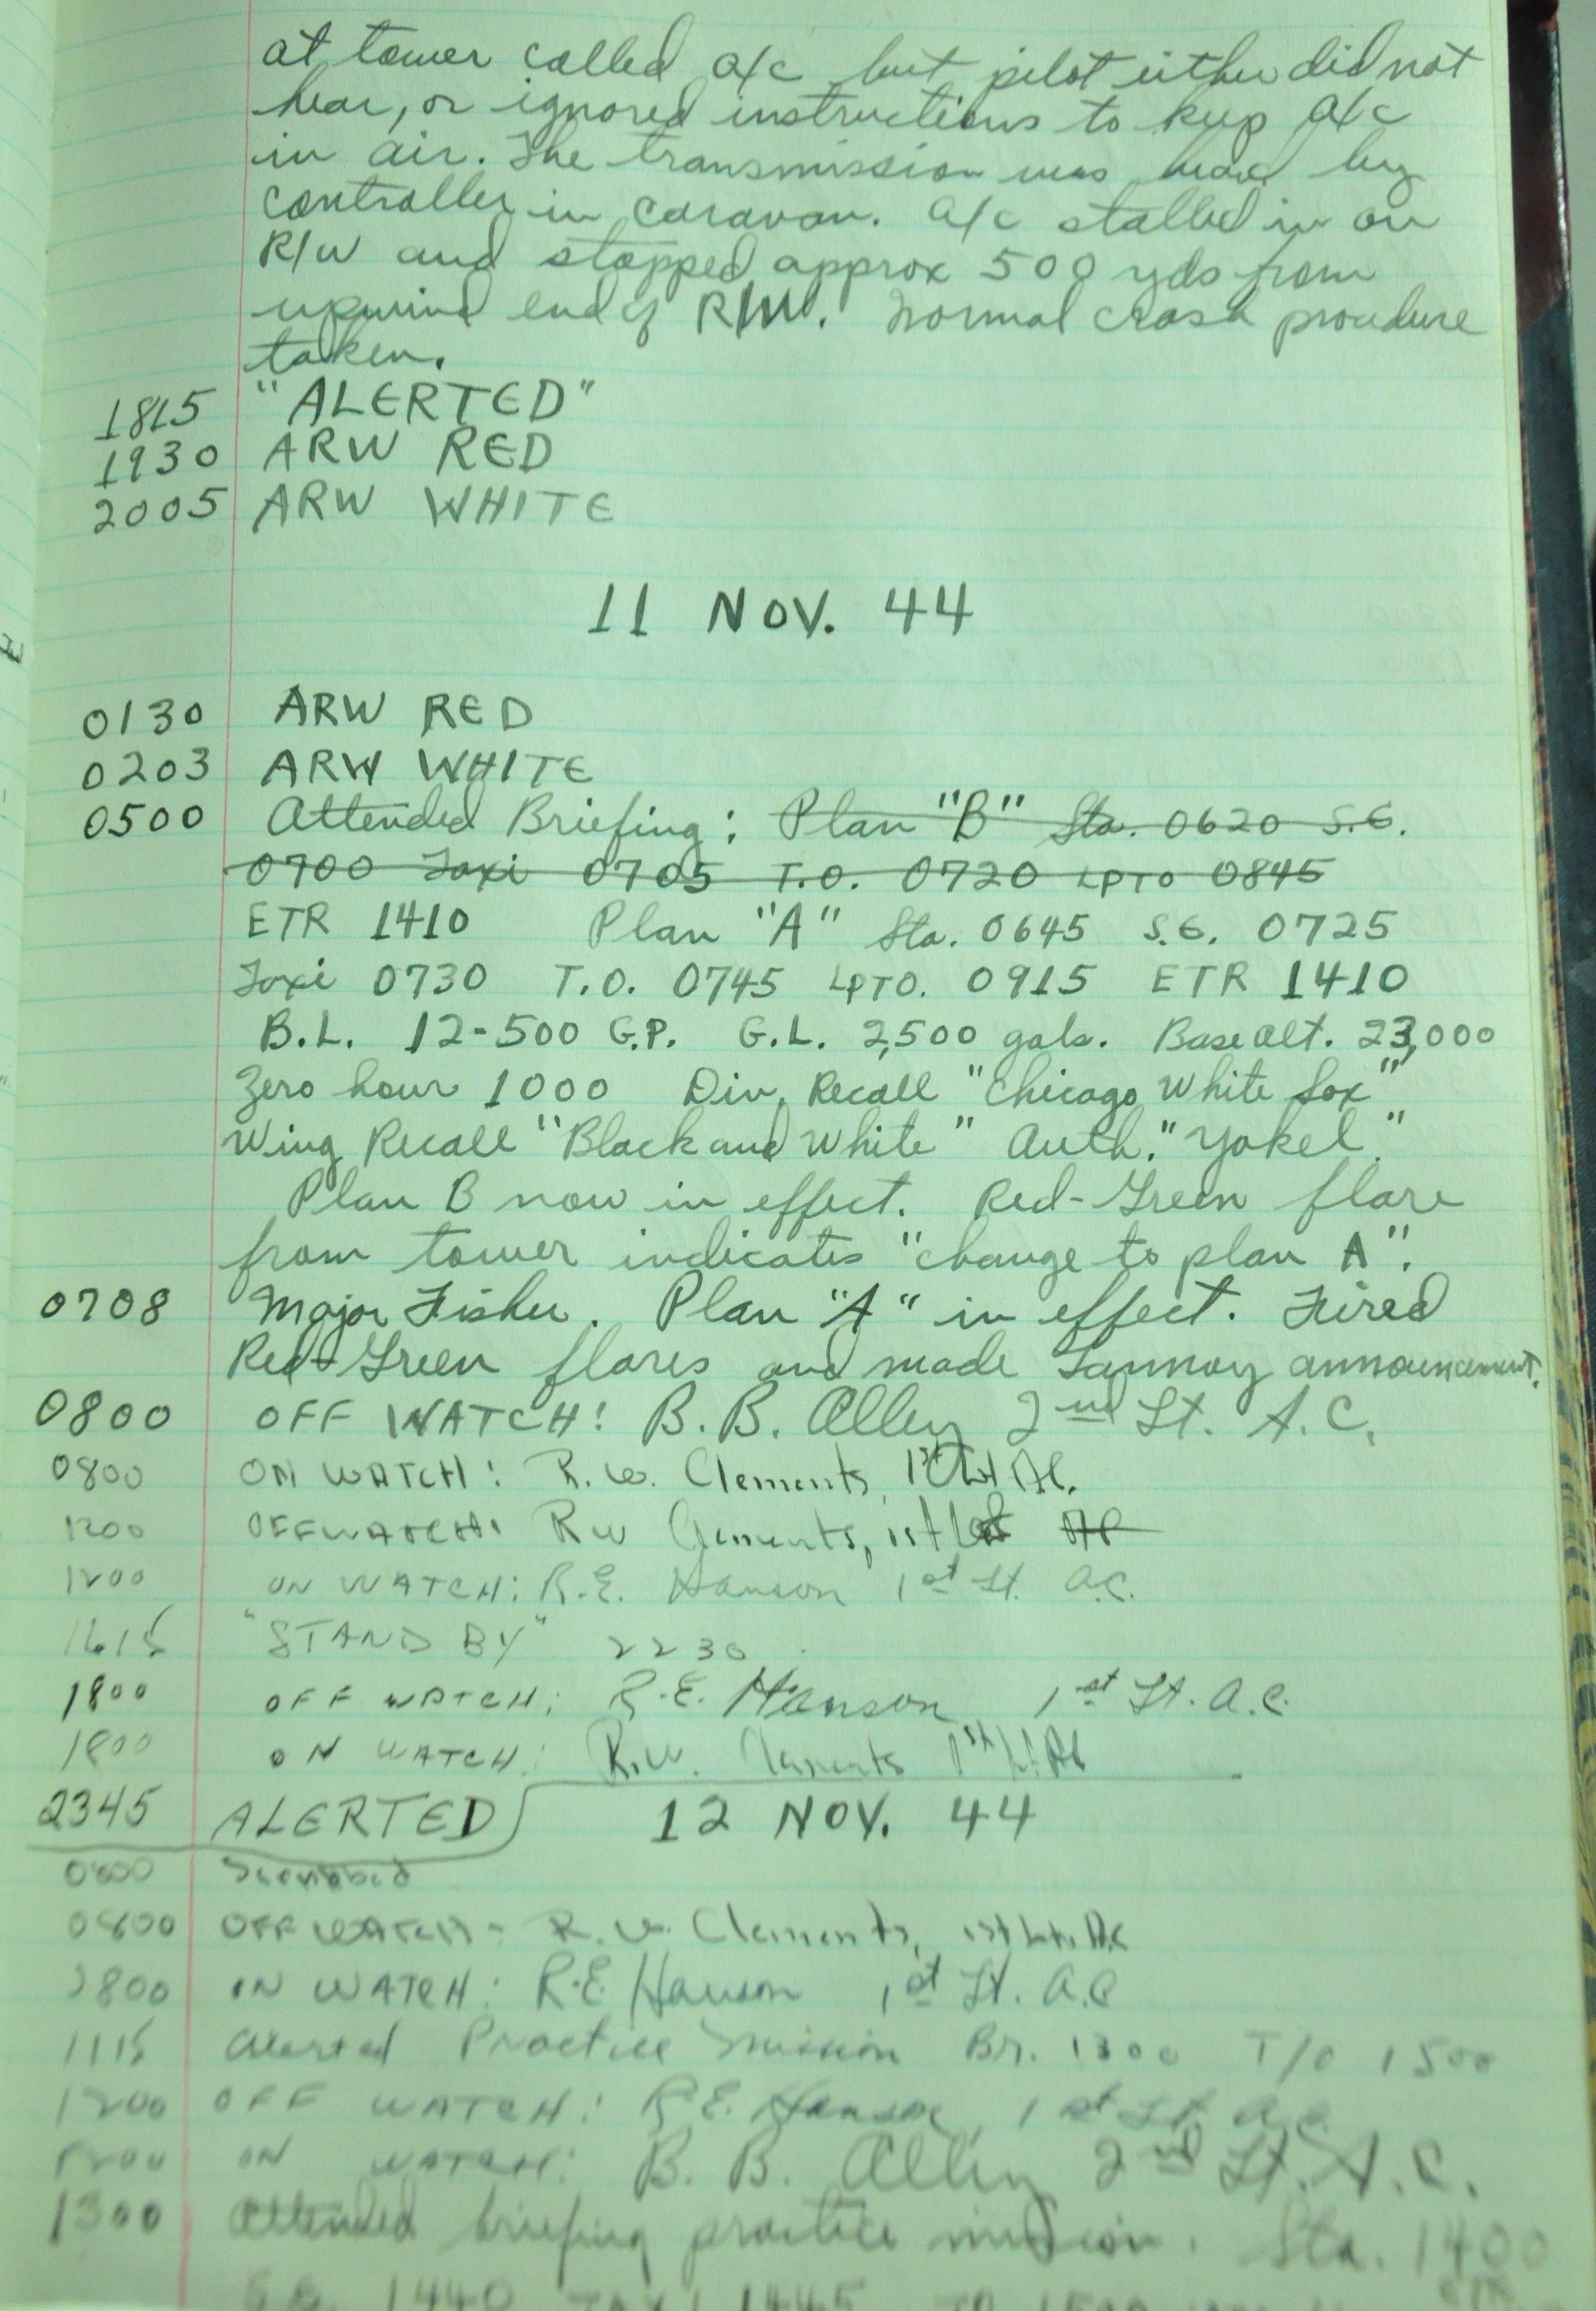 at tower called a/c but pilot either did not
hear, or ignored instructions to keep a/c
in air. The transmission was heard by
controller in caravan. a/c stalled in on
R/W and stopped approx 500 yds from
upwind end of R/W. Normal crash procedure
taken.
1815 "ALERTED"
1930 ARW RED
2005 ARW WHITE
11 NOV. 44
0130 ARW RED
0203 ARW WHITE
0500 Attended Briefing: Plan "B" Sta. 0620 S.E.
0700 Taxi 0705 T.O. 0720 LPTO 0845
ETR 1410 Plan "A" Sta. 0645 S.E. 0725
Taxi 0730 T.O. 0745 LPTO. 0915 ETR 1410
B.L. 12-500 G.P. G.L. 2,500 gals. Base alt. 23,000
Zero hour 1000 Div. Recall "Chicago White Sox"
Wing Recall "Black and White" Auth. "Yokel."
Plan B now in effect. Red-Green flare
from tower indicates "change to plan A".
0708 Major Fisher. Plan "A" in effect. Fired
Red-Green flares and made Tannoy announcement.
0800 OFF WATCH: B. B. Alley 2nd Lt. A.C.
0800 ON WATCH: R. W. Clements, 1st Lt AC.
1200 OFF WATCH: RW Clements, 1st Lt AC
1200 ON WATCH: R.E. Hanson 1st Lt. A.C.
1615 "STAND BY" 2230
1800 OFF WATCH: R.E. Hanson 1st Lt. A.C.
1800 ON WATCH: R.W. Clements 1st Lt AC
2345 ALERTED 12 NOV. 44
Scrubbed
0800 OFF WATCH- R. W. Clements, 1st Lt. AC
0800 ON WATCH: R.E. Hanson 1st Lt. A.C
1115 Alerted Practice Mission Br. 1300 T/O 1500
1200 OFF WATCH: R.E. Hanson, 1st Lt. A.C.
1200 ON WATCH: B. B. Alley 2nd Lt. A.C.
1300 Attended briefing practice mission. Sta. 1400
S.E. 1440 TAXI 1445